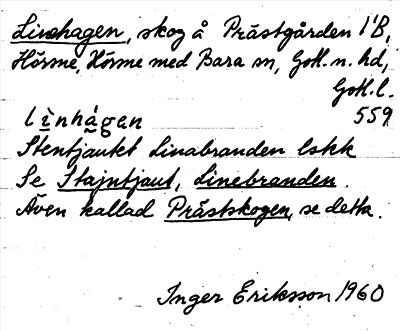 Linhagen, skog å Prästgården 1¹B,
Hörsne, Hörsne med Bara sn, Gotl. n. hd,
Gotl. l.
559
lìnhágen
Stentjaukt Linabranden lskk
Se Stajntjaut, Linebranden.
Även kallad Prästskogen, se detta.
Inger Eriksson 1960